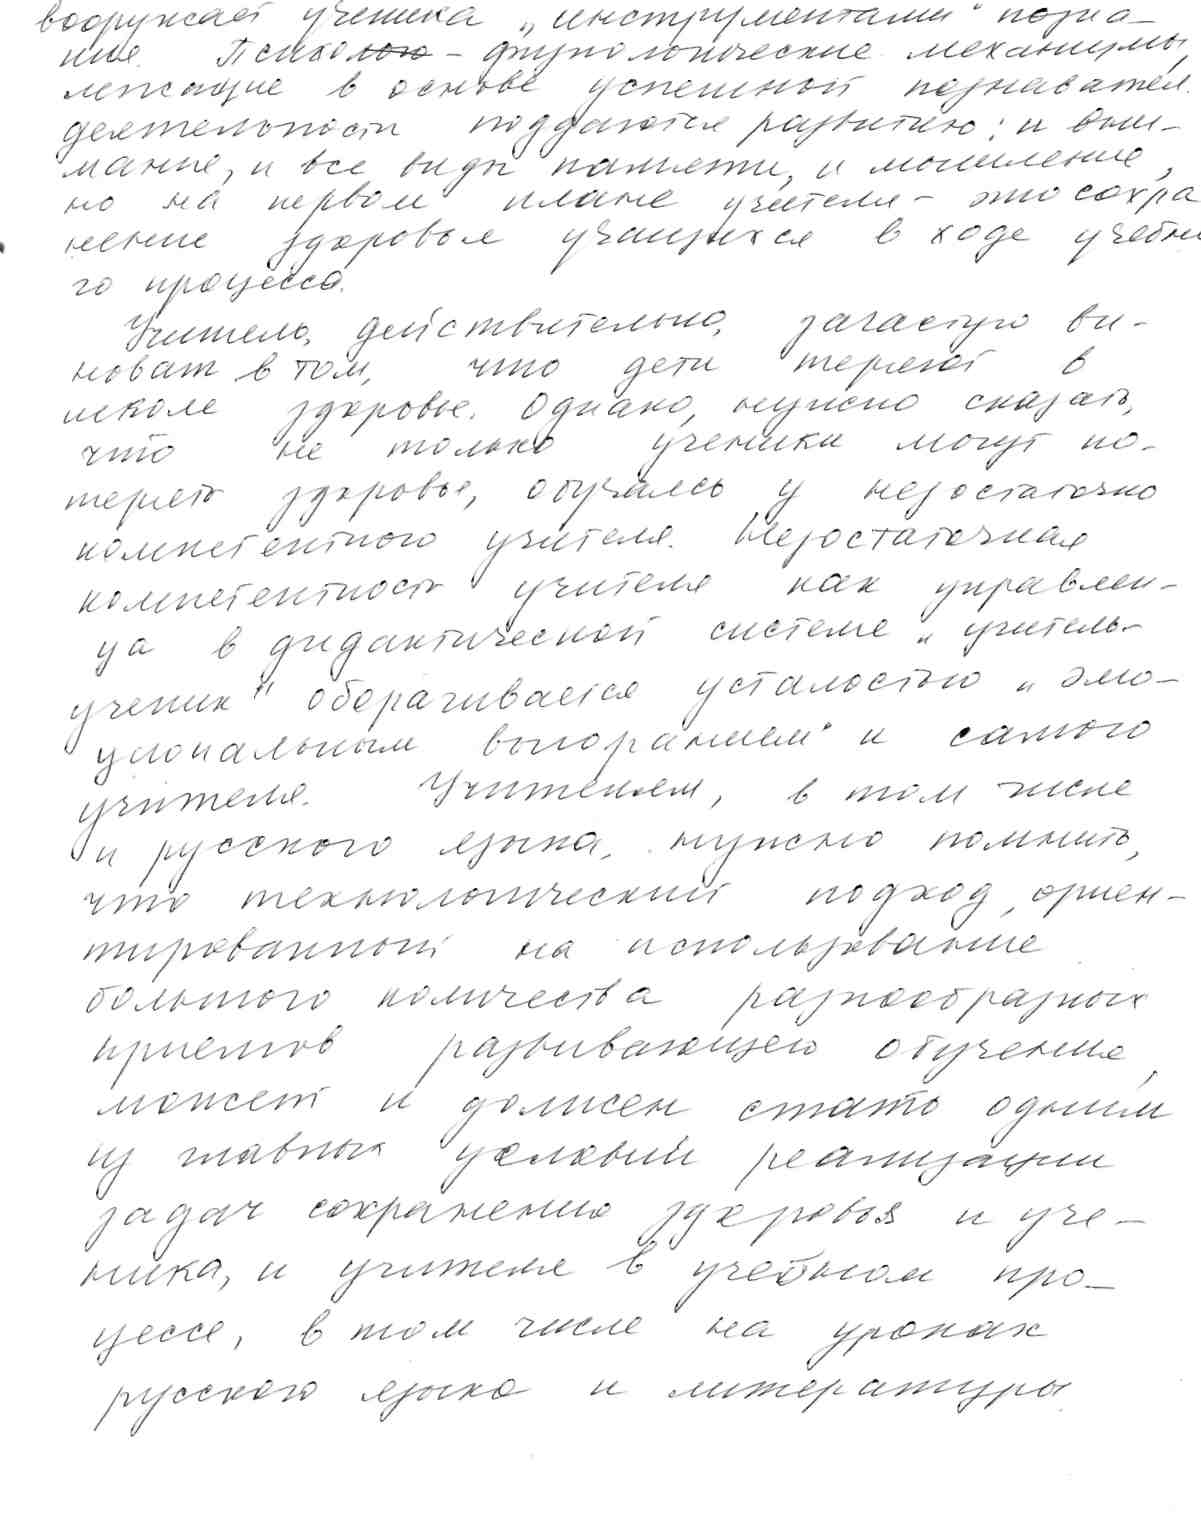 вооружает ученика „инструментами" позна-
ния. Психо - физиологические механизмы,
лежащие в основе успешной познавател.
деятельности поддаются развитию: и вни-
мание, и все виды памяти, и мышление,
но на первом плане учителя - это сохра
нение здоровья учащихся в ходе учебно
го процесса.
Учитель, действительно, зачастую ви-
новат в том, что дети теряют в
школе здоровье. Однако, нужно сказать,
что не только ученики могут по-
терять здоровье, обучаясь у недостаточно
компетентного учителя. Недостаточная
компетентность учителя как управлен-
ца в дидактической системе „учитель-
ученик" оборачивается усталостью „эмо-
циональным выгоранием" и самого
учителя. Учителям, в том числе
и русского языка, нужно помнить,
что технологический подход, ориен-
тированный на использование
большого количества разнообразных
приемов развивающего обучения,
может и должен стать одним
из главных условий реализации
задач сохранению здоровья и уче-
ника, и учителя в учебном про-
цессе, в том числе на уроках
русского языка и литературы